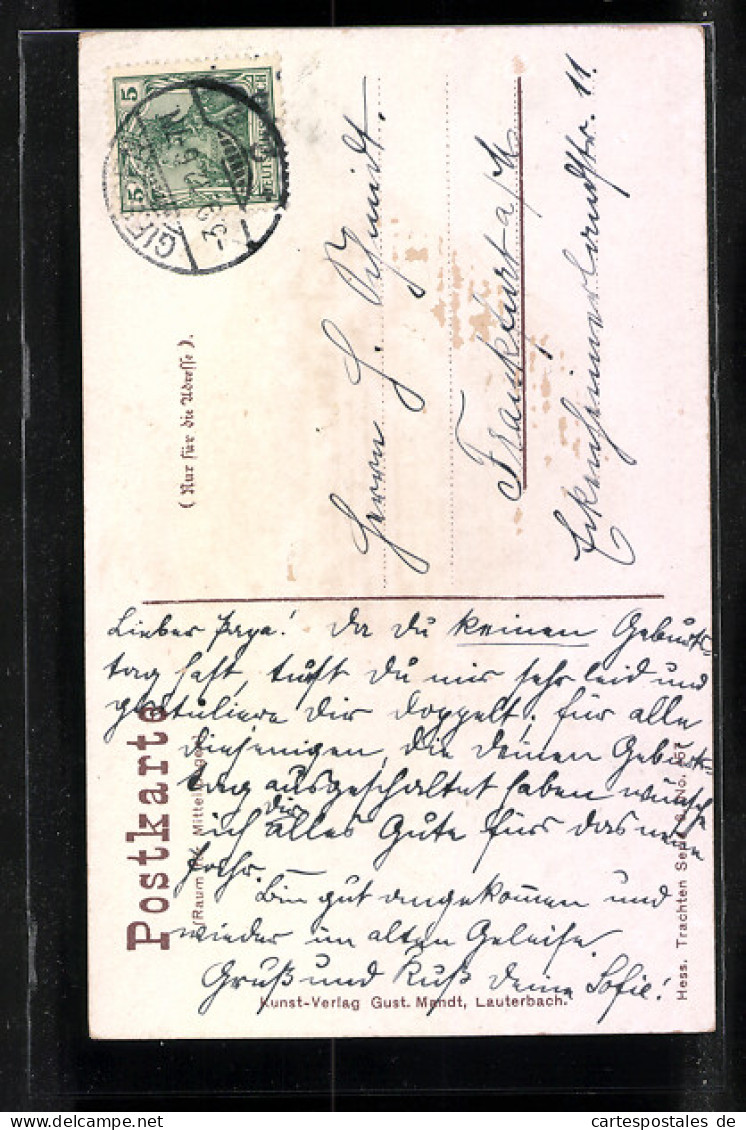 5 5
(Nur für die Adresse).
Herrn H. Schmidt.
Frankfurt a/M
Eckenheimerlandstr. 11.
Postkarte
(Raum für Mitteilungen)
Lieber Papa! Da Du keinen Geburts-
tag hast, tust Du mir sehr leid und
gratuliere Dir doppelt; für alle
diejenigen, die deinen Geburts-
tag ausgeschaltet haben wünsche
ich dir alles Gute fürs das neue
Jahr. —
Bin gut angekommen und
wieder im alten Geleise.
Gruß und Kuß Deine Sofie!
Kunst-Verlag Gust. Mandt, Lauterbach.
Hess. Trachten Serie No.
www.cartespostales.de